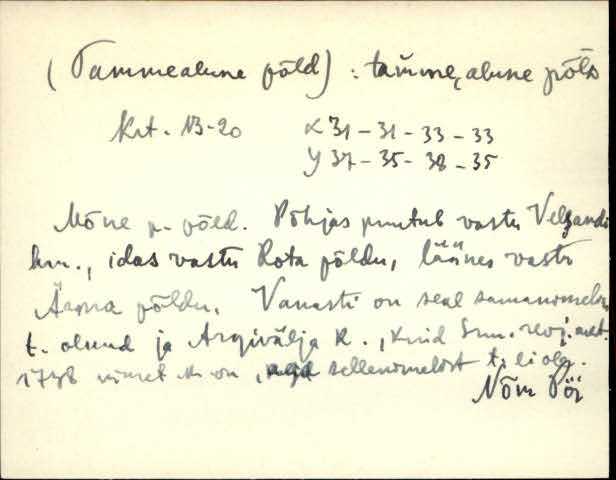 (Tammealune põld) : tam̆me, alune põld
Krt. 13-20 X 31 - 31 - 33 - 33
Y 37 - 35 - 38 - 35
Mõne p. põld. Põhjas puutub vastu Velsandi
km., idas vastu Rota põldu, läänes vastu
põldu. Vanasti on seal samanimeline
t. olnud ja Argivälja k., kuid
1798 on, sellenimelist t. ei ole.
Nõm Pöi